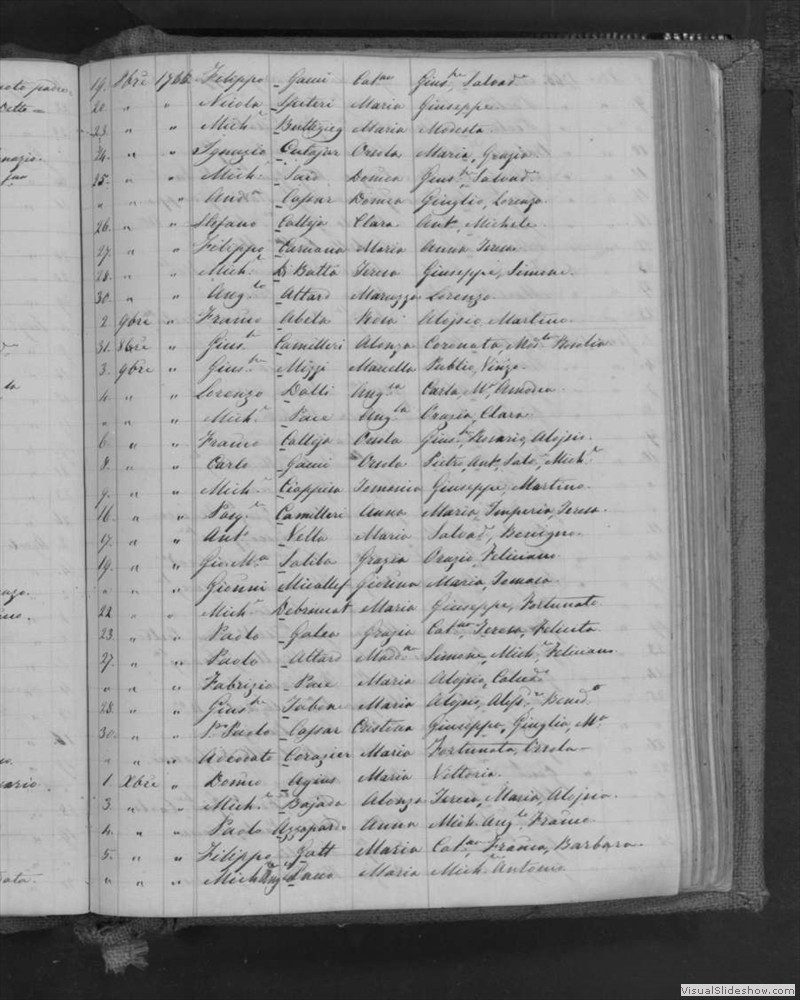 noto padre
Detto =
nazio.
19. 8bre 1766 Filippo Gauci Cat.na Gius.pe Salvad.e
20. " " Nicola Spiteri Maria Giuseppe
23. " " Mich.e Buttigieg Maria Modesta
24. " " Ignazio Cutajar Orsola Maria, Grazia
25. " " Mich.e Domca Gius.pe, Salvad.e
" " " And.a Cassar Domca Giuglio, Lorenzo
26. " " Stefano Calleja Clara Ant. Michele
27. " " Filippo Caruana Maria Anna, Teresa
28. " " Mich.e Di Batta Teresa Giuseppe, Simone
30. " " Ang.lo Attard Maruzza Lorenzo
2. 9bre " Franco Abela Rosa Aloisio, Martino
31. 8bre " Gius.e Camilleri Alonza Coronata, Rosolia
3. 9bre " Gius.e Mizzi Marella Publio, Vinzo
4. " " Lorenzo Dalli Ang.la Carla, M.a Amodea
" " " Mich.e Pace Ang.la Grazia, Clara
6. " " Franco Calleja Orsola Gius.e, Rosario, Aloisio
8. " " Carlo Gauci Orsola Pietro, Ant., Salv.e, Mich.e
9. " " Mich.e Ciappisa Tomasica Giuseppe, Martino
16. " " Pasq.e Camilleri Anna Maria, Imperia, Teresa
17. " " Ant.o Vella Maria Salvad.e, Benigno
19. " " Gio M.a Saliba Grazia Orazio, Feliciano
" " " Gionni Micallef Giovina Maria, Tomasa
22. " " Mich.e Debrincat Maria Giuseppe, Fortunato
23. " " Paolo Galea Grazia Cat.na, Teresa, Felicita
27. " " Paolo Attard Madd.na Simone, Mich.e, Feliciano
" " " Fabrizio Pace Maria Aloisio, Calced.o
28. " " Gius.e Tabone Maria Aloisio, Aless.o Bened.o
30. " " Paolo Cassar Cristina Giuseppa, Giuglia, M.a
" " " Avocato Maria Fortunata, Orsola
1. Xbre " Domco Agius Maria Vittoria
3. " " Mich.e Bajada Alonza Teresa, Maria, Aloisia
4. " " Paolo Azzopardi Anna Mich. Ang.lo, Franco
5. " " Filippo Gatt Maria Cat.na, Franca, Barbara
" " " Mich.Ang.lo Maria Mich.e Antonio
VisualSlideshow.com